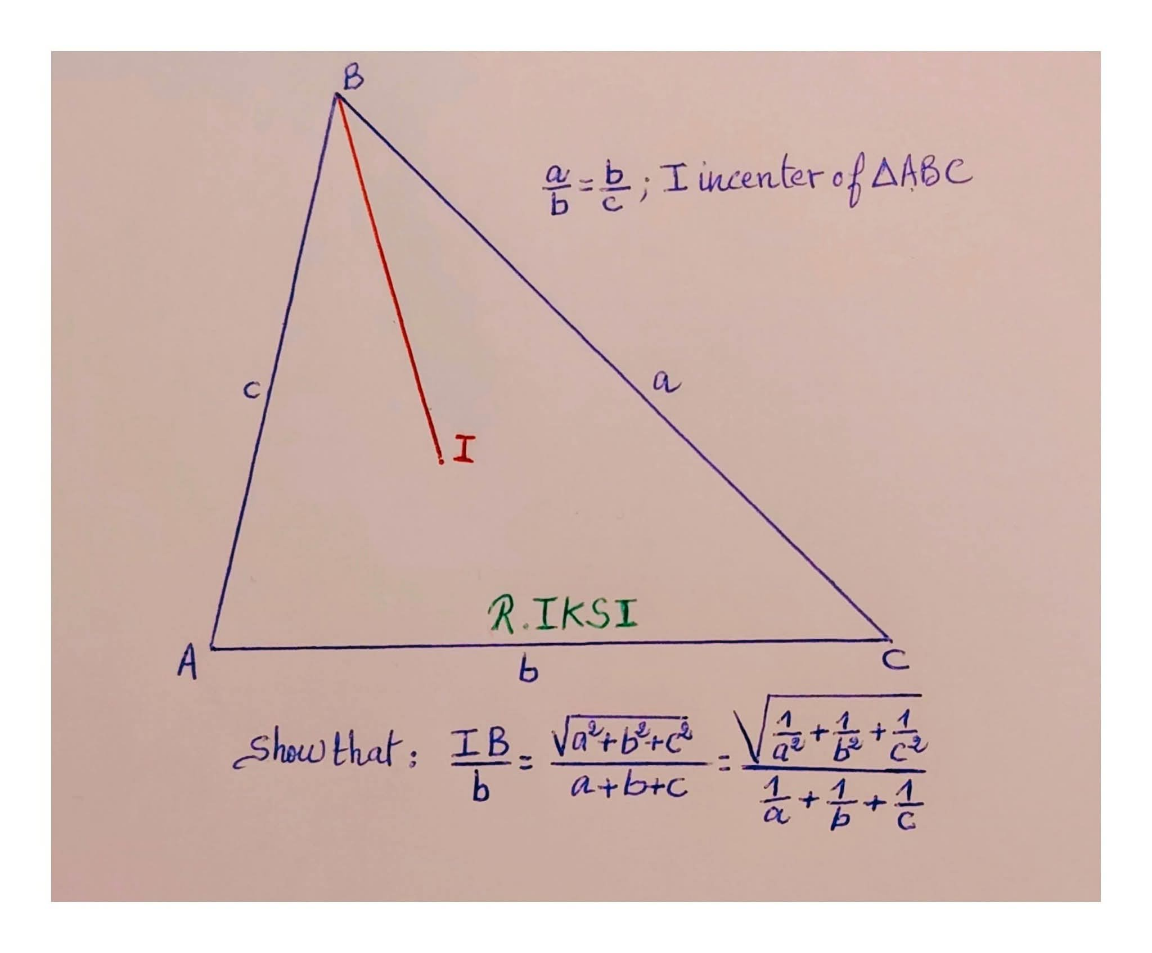 B
a/b = b/c ; I incenter of △ABC
c
a
I
R.IKSI
A
b
C
Show that: IB/b = √(a²+b²+c²)/(a+b+c) = √(1/a²+1/b²+1/c²)/(1/a+1/b+1/c)